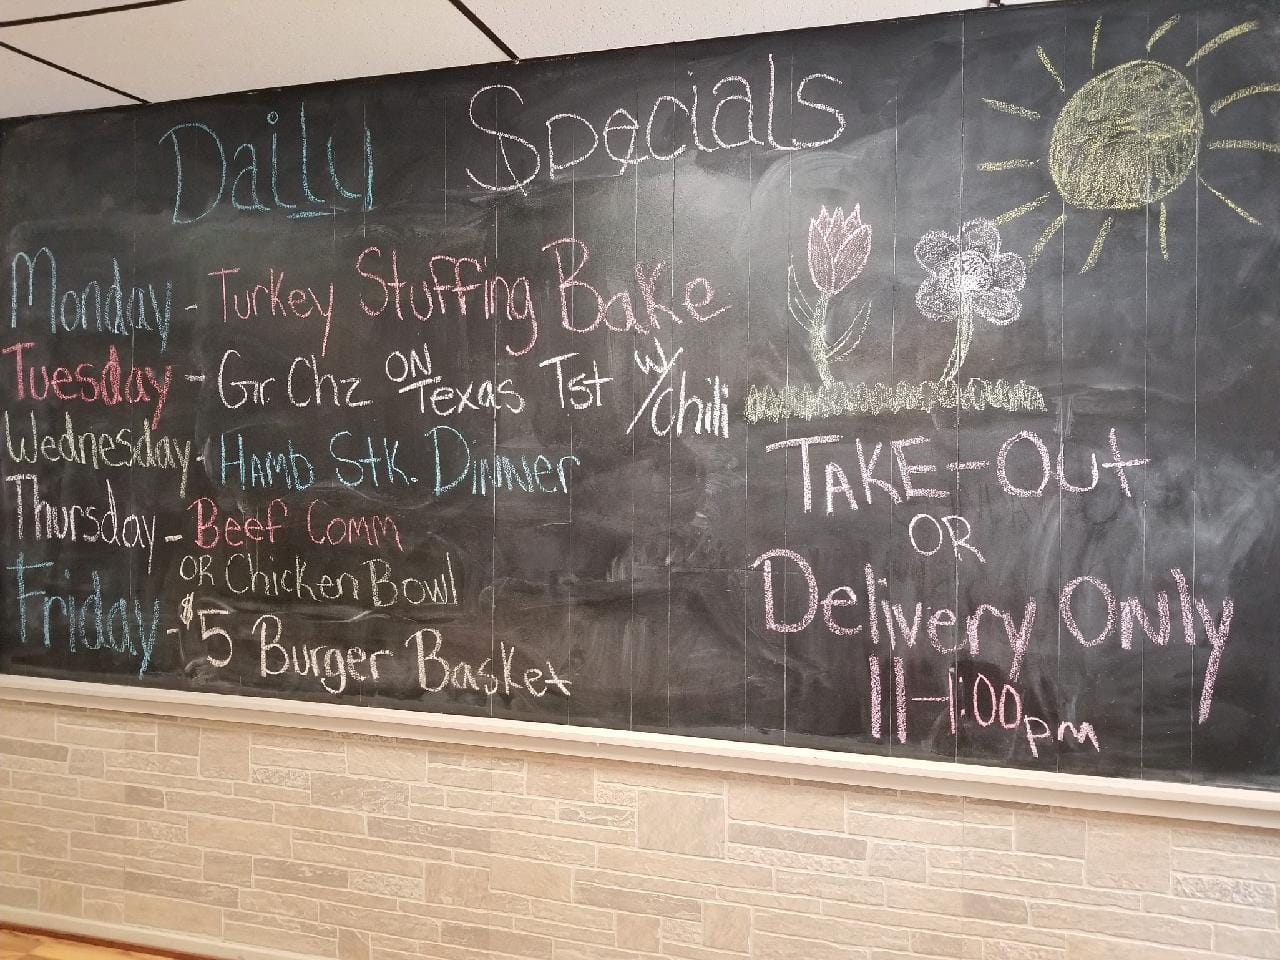 Daily Specials
Monday - Turkey Stuffing Bake
Tuesday - Gr. Chz ON Texas Tst w/ Chili
Wednesday - Hamb Stk. Dinner
Thursday - Beef Comm
OR Chicken Bowl
Friday - $5 Burger Basket
TAKE-Out
OR
Delivery Only
11-1:00pm